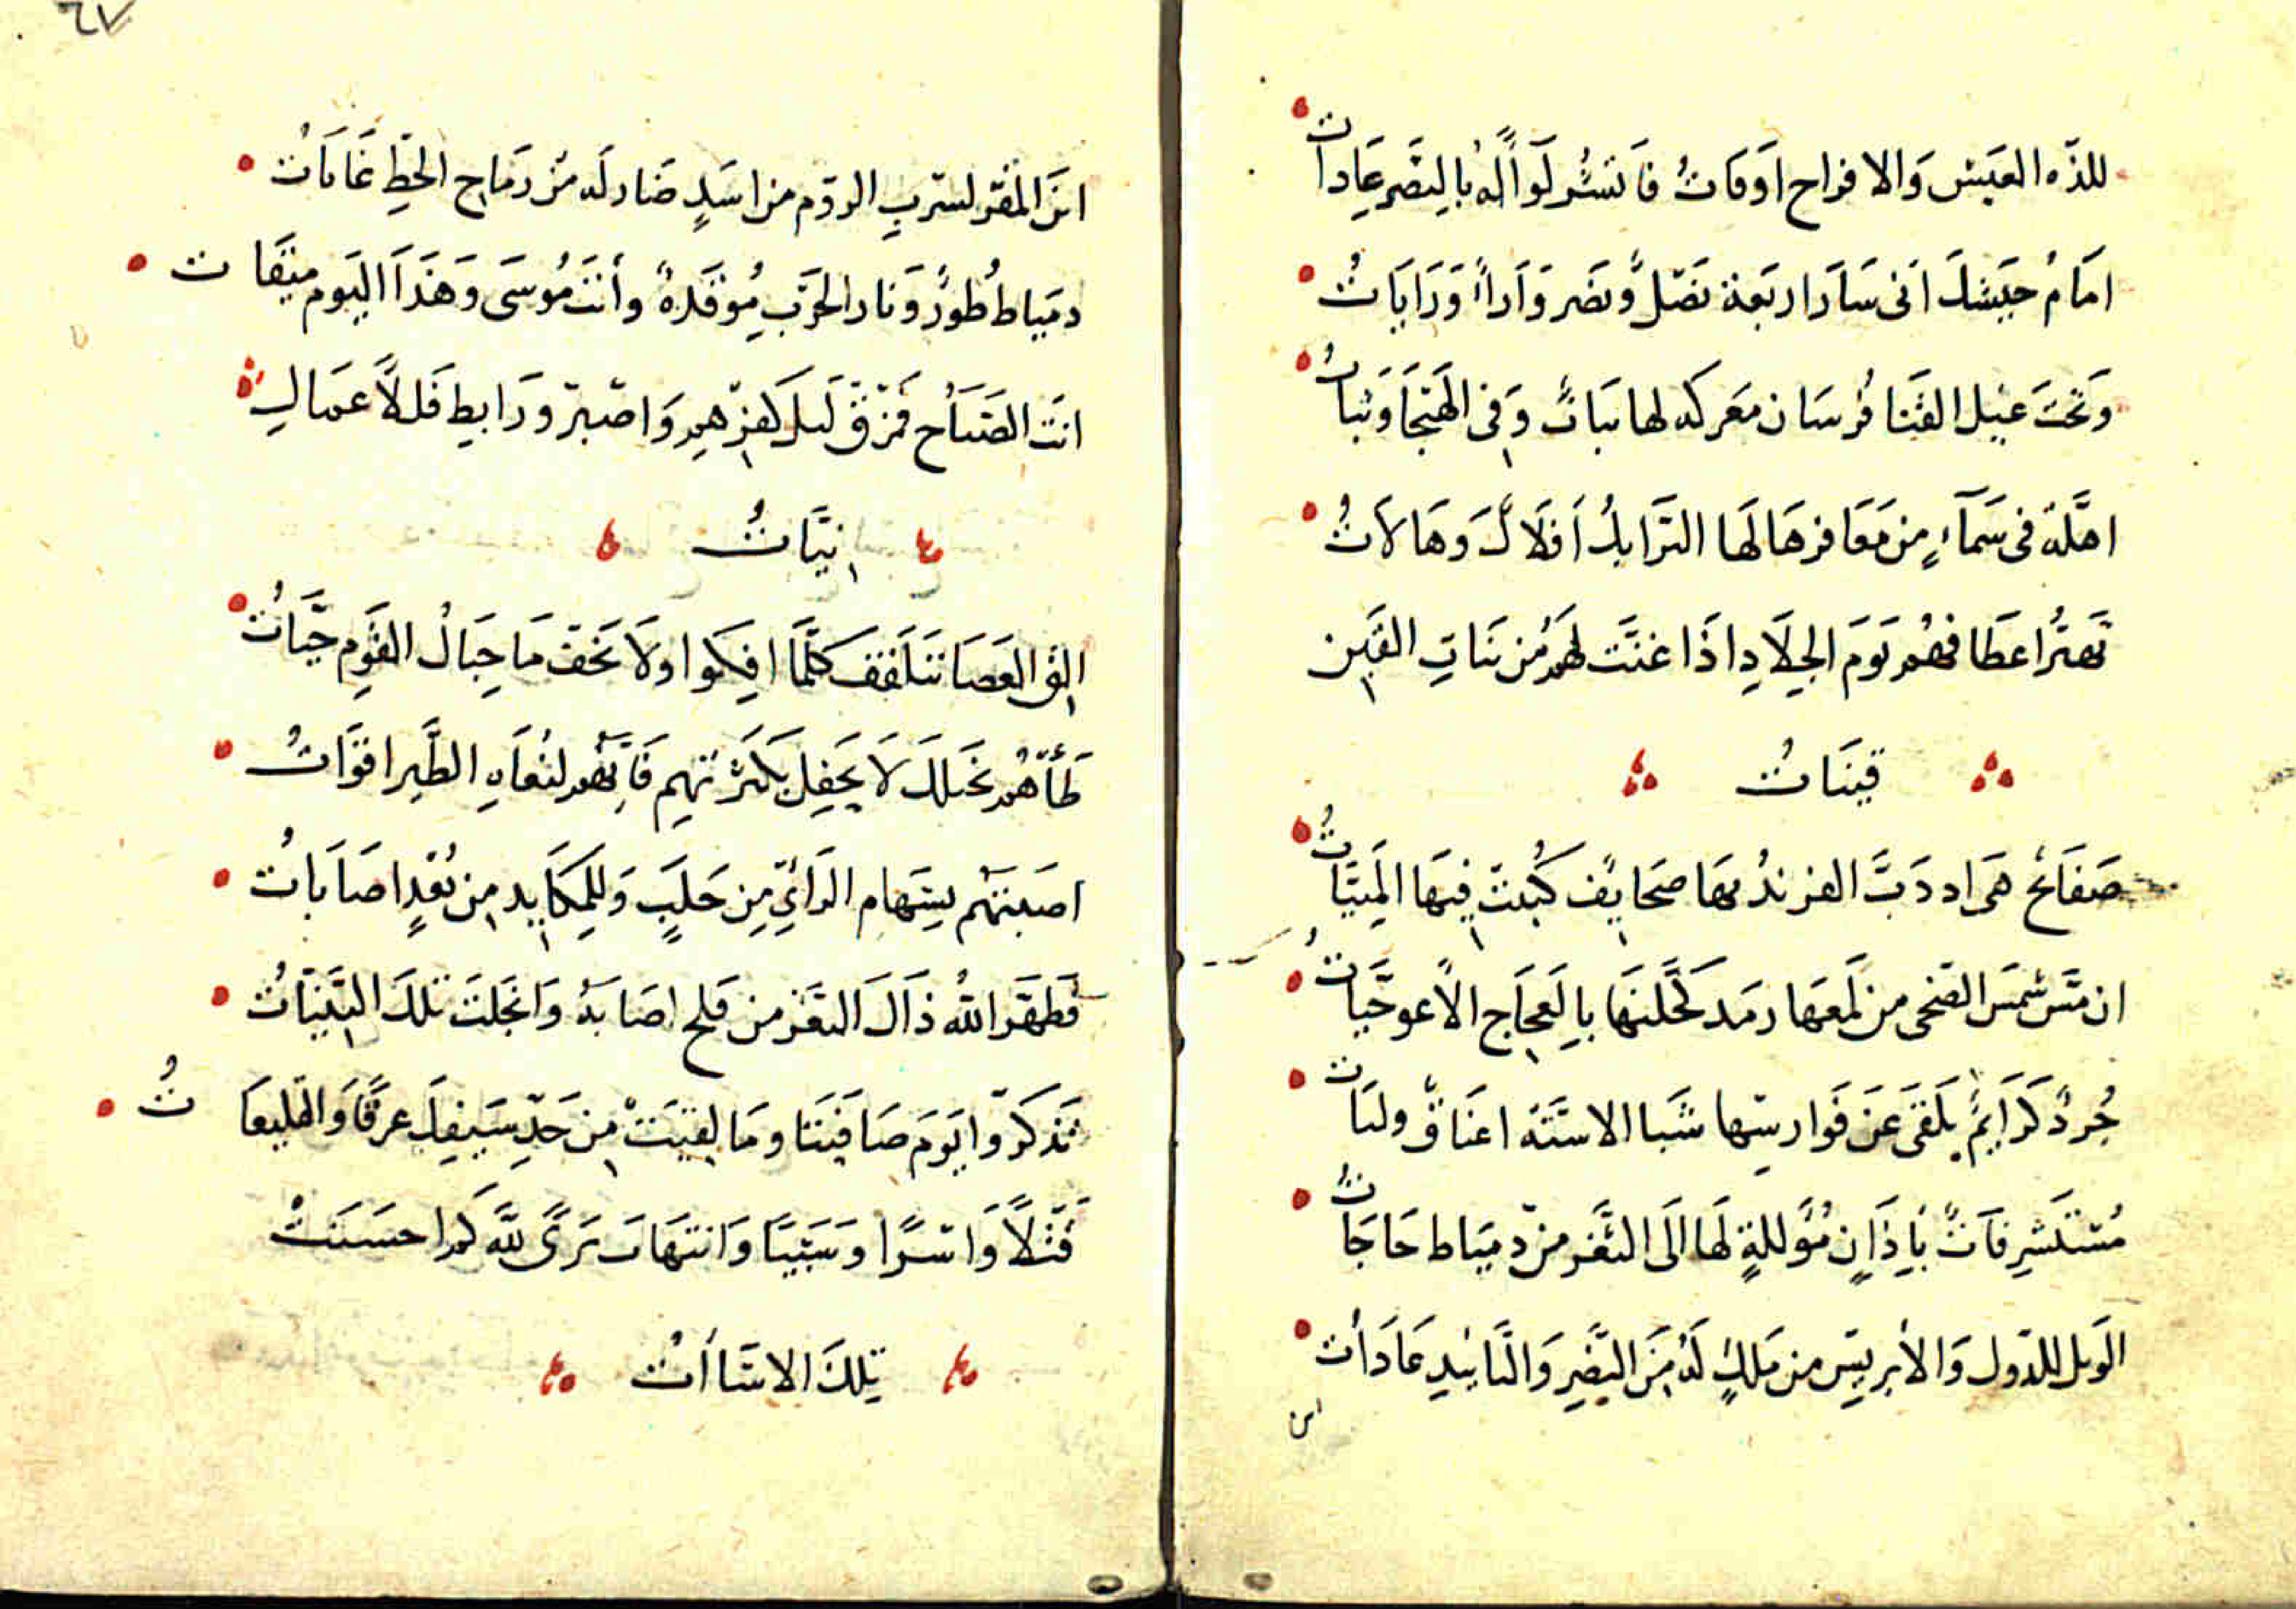 للذة العيش والافراح اوقات فانشر لوآاله بالنصر عادات
امام جيشك انى سار اربعة نصل ونصر وآرآء ورايات
وتحت غيل القنا فرسان معركه لها ثبات وفى الهيجا وثبات
اهلة فى سمآء من مغافرها لها الترايك افلاك وهالات
تهتز اعطافهم يوم الجلاد اذا غنت لهم من بنات القين
قينات
صفائح هى اذ دب الفرند بها صحايف كتبت فيها المنيات
ان مس شمس الضحى من لمعها رمد كحلنها بالعجاج الاعوجيات
جرد كرايم يلقى عن فوارسها شبا الاسنه اعناق ولبات
مستشرفات باذان مؤللة لها الى الثغر من دمياط حاجات
الويل للدول والابريس من ملك له من النصر والتائيد عادات
اين
٦٧
اين المفر لسرب الروم من اسد ضار له من رماح الخط غابات
دمياط طور ونار الحرب موقدة وأنت موسى وهذا اليوم ميقات
انت الصباح فمزق ليل كفرهم واصبر ورابط فللاعمال
نيات
الق العصا تتلقف كلما افكوا ولا تخف ما حبال القوم حيات
طأهم بخيلك لا تحفل بكثرتهم فانهم لبغاث الطير اقوات
اصبتهم بسهام الرأى من حلب وللمكايد من بعد اصابات
فطهر الله ذاك الثغر من قلح اصابه وانجلت تلك الثنيات
تذكروا يوم صافيتا وما لقيت من حد سيفك عرقا والقليعات
قتلا واسرا وسبيا وانتهاب ثرى لله كم احسنت
تلك الاسَاأت